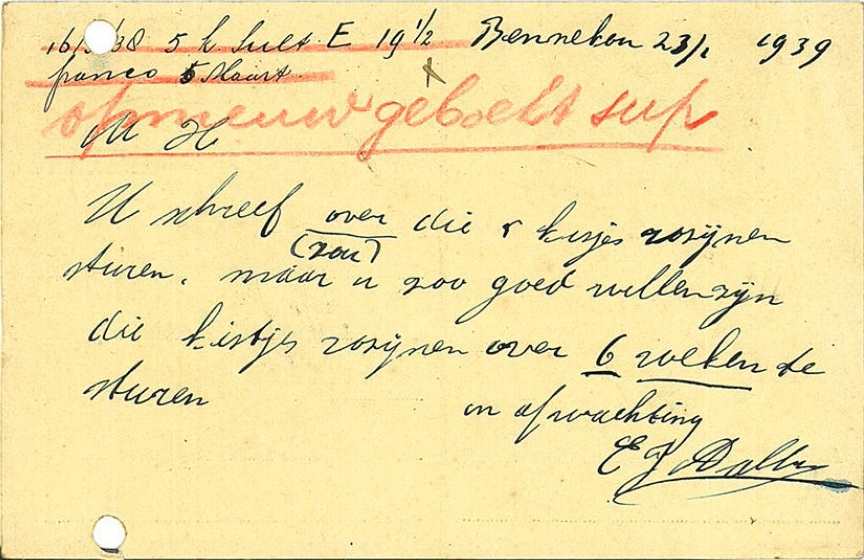 16/ /38 5 k Sult. E 19 1/2 Benneken 23/1 1939
franco 5 Maart.
opnieuw geboekt
M H
U schreef over die kisjes rozijnen
(zou)
sturen. maar u zoo goed willen zijn
die kistjes rozijnen over 6 weken te
sturen
in afwachting
E J